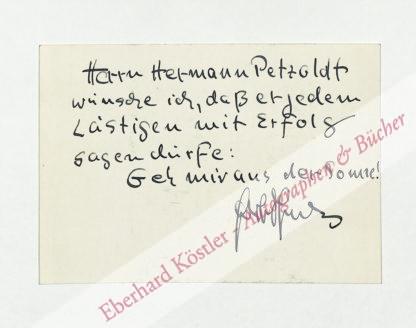 Herrn Hermann Petzoldt
wünsche ich, daß er jedem
Lästigen mit Erfolg
sagen dürfe:
Geh mir aus der Sonne!
Eberhard Köstler - Autographen & Bücher